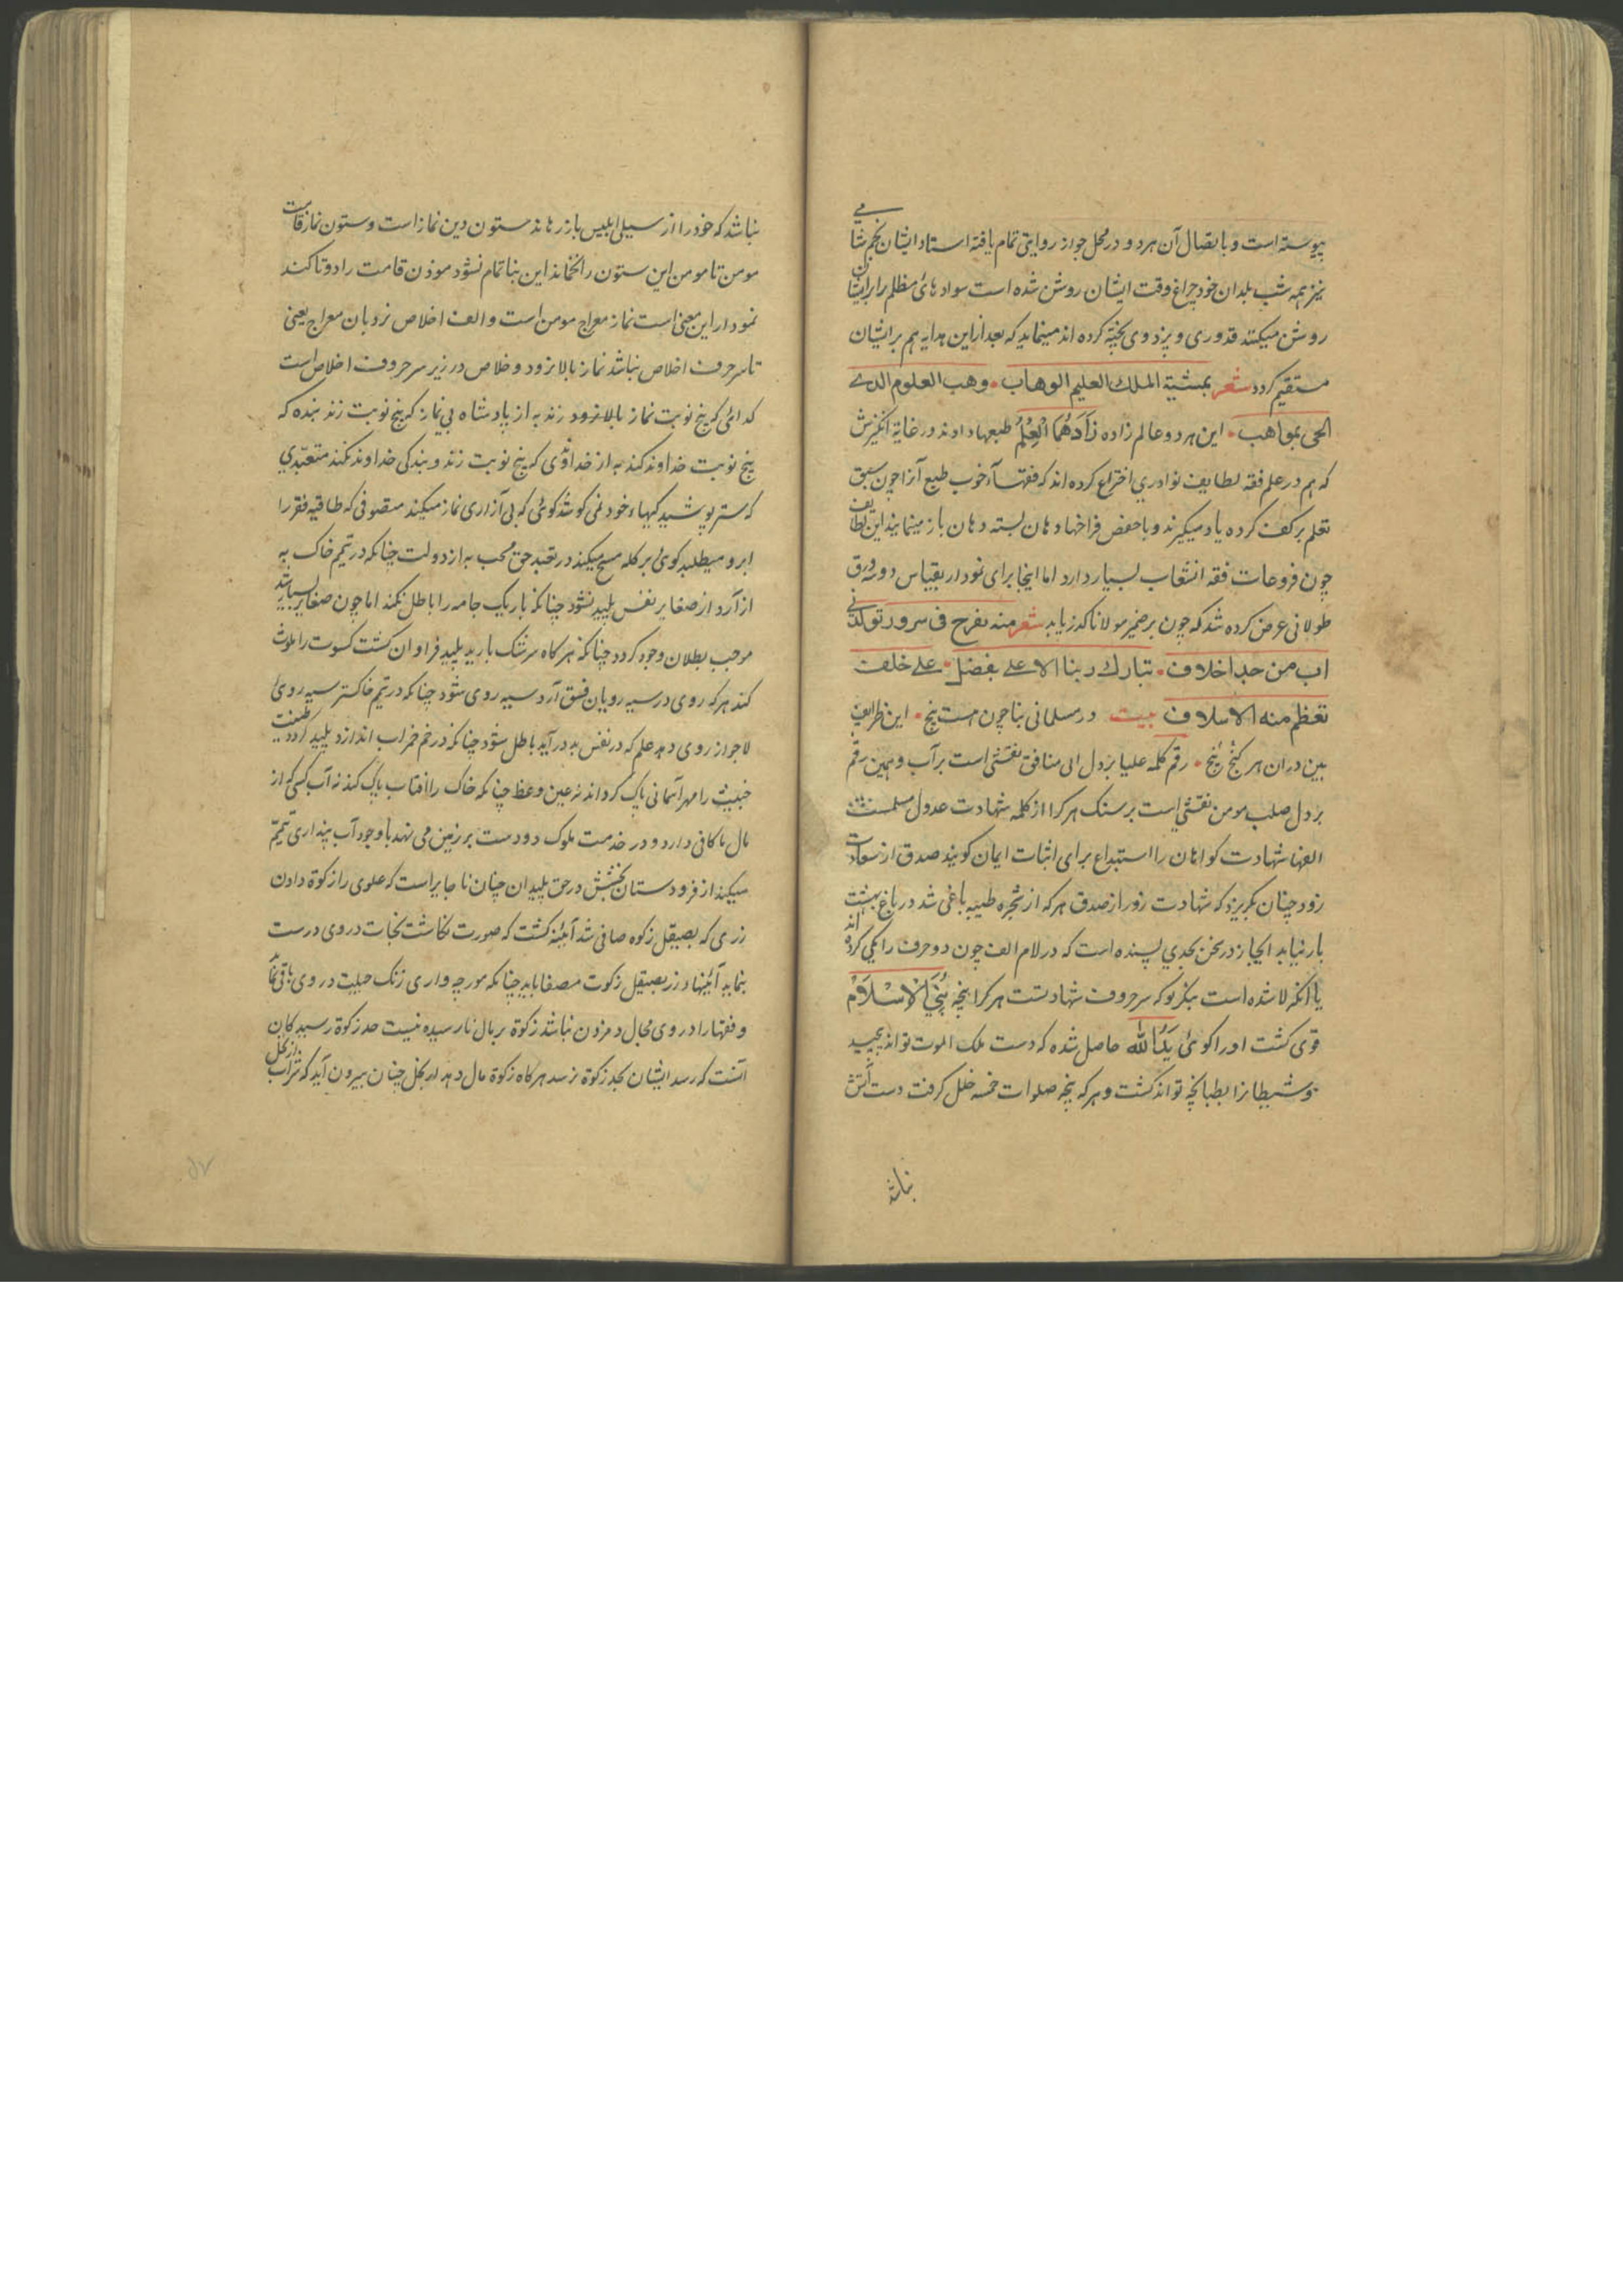 پیوسته است و باتصال آن هر دو در محل جواز روایتی تمام یافته استاد ایشان نجم شامی
نیز همه شب بلدان خود چراغ وقت ایشان روشن شده است سوادهای مظلم را برایشان
روشن میکند قدوری و پزدوی پخته کرده اند مینماید که بعد از این هدایه هم بر ایشان
مستقیم کردد شعر بمشیة الملک العلیم الوهاب وهب العلوم الذی
الحی بمواهب این هر دو عالم زاده زَادَهُمَا الْعِلْمُ طبعها دادند در غایة انکیزش
که هم در علم فقه لطایف نوادری اختراع کرده اند که فقهاء خوب طبع آنرا چون سبق
تعلم بر کف کرده یاد میکیرند و با حفض فراخها دهان بسته دهان باز مینمایند این لطایف
چون فروعات فقه انشعاب بسیار دارد اما اینجا برای نمودار بقیاس دو سه ورق
طولانی عرض کرده شد که چون بر ضمیر مولانا کذر یابد شعر منه تفرح فی سرور
اب من حد اخلاف تبارک ربنا الاعلی بفضل علی خلف
تعظم منه الاسلاف بیت در مسلمانی بنا چون هست پنج این ظرایف
بین در آن هر کنج پنج رقم کلمه علیا بر دل ابی منافق نقشی است بر آب و همین رقم
بر دل صلب مومن نقشی است بر سنک هر کرا از کلمه شهادت عدول
الغها شهادت کواهان را استبداع برای اثبات ایمان کویند صدق از سعادت
زود چنان بکریزد که شهادت زور از صدق هر که از شجره طیبه باغی شد در باغ بهشت
بار نیابد ایجاز در سخن بحدی پسنده است که در لام الف چون دو حرف را یکی کرده اند
یا آنکه لا شده است بنکر تو که سر حروف شهادتست هر کرا پنجه بُنِیَ الْاِسْلَامُ
قوی کشت او را کوئی یَدُ الله حاصل شده که دست ملک الموت تواند پیچید
تو شیطانرا بطبانچه تواند کشت و هر که پنجه صلوات خمسه خلل کرفت دست آتش
نباشد
نباشد که خود را از سیلی ابلیس باز رهاند ستون دین نماز است و ستون نماز قامت
مومن تا مومن این ستون را نخماند این بنا تمام نشود موذن قامت را دو تا کند
نمودار این معنی است نماز معراج مومن است و الف اخلاص نردبان معراج یعنی
تا سر حرف اخلاص نباشد نماز بالا نرود و خلاص در زیر سر حروف اخلاص است
کدائی که پنج نوبت نماز بالا نرود زند به از پادشاه بی نماز که پنج نوبت زند بنده که
پنج نوبت خداوند کند به از خداوندی که پنج نوبت زند و بندکی خداوند نکند متعبدی
که ستر پوشید کیهاء خود نمی کوشد کوئی که بی آزاری نماز میکند متصوفی که طاقیه فقر را
ابرو میطلبد کوئی بر کله مسح میکند در تعبد حق محب به از دولت چنانکه در تیمم خاک به
از آرد از صغایر نفس پلید نشود چنانکه باریک جامه را باطل نکند اما چون صغایر بسیار شد
موجب بطلان وجود کردد چنانکه هر کاه سرشک بارید پلید فراوان کشت کسوت را ملوث
کند هر که روی در سیه رویان فسق آرد سیه روی شود چنانکه در تیمم خاکستر سیه روئی
لا جواز روی دهد علم که در نفس بد در آید باطل شود چنانکه در خم خمر آب اندازد پلید کردد طینت
خبیث را مهر آسمانی پاک کرداند نه عین وعظ چنانکه خاک را آفتاب پاک کند نه آب کسی که از
مال ناکافی دارد و در خدمت ملوک دو دست بر زمین می نهد با وجود آب پنداری تیمم
میکند از فرودستان بخشش در حق پلیدان چنان ناجایز است که علوی را زکوة دادن
زری که بصیقل زکوه صافی شد آیینه کشت که صورت نکاشت نجات در وی درست
بنماید آیینهاء زر بصیقل زکوت مصفا باید چنانکه مورچه واری زنک حیلت در وی باقی نماند
و فقها را در وی مجال دم زدن نباشد زکوة بر مال نارسیده نیست حد زکوة رسید کان
آنست که رسد ایشان بحد زکوة نرسد هر کاه زکوة مال دهد از بخل چنان بیرون آید که شراب از بخل
۵۷